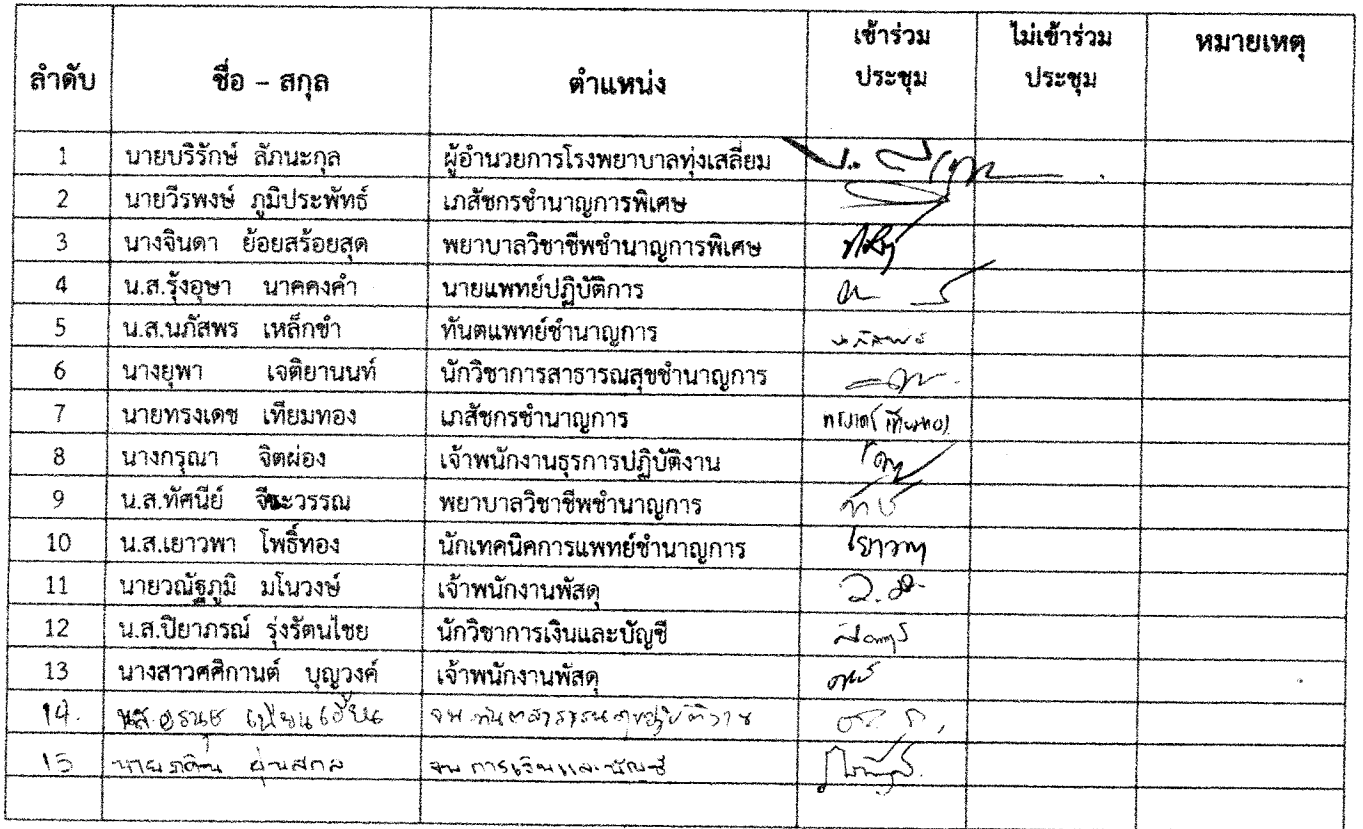 ลำดับ ชื่อ – สกุล ตำแหน่ง เข้าร่วมประชุม ไม่เข้าร่วมประชุม หมายเหตุ
1 นายบริรักษ์ ลัภนะกุล ผู้อำนวยการโรงพยาบาลทุ่งเสลี่ยม
2 นายวีรพงษ์ ภูมิประพัทธ์ เภสัชกรชำนาญการพิเศษ
3 นางจินดา ย้อยสร้อยสุด พยาบาลวิชาชีพชำนาญการพิเศษ
4 น.ส.รุ้งอุษา นาคคงคำ นายแพทย์ปฏิบัติการ
5 น.ส.นภัสพร เหล็กขำ ทันตแพทย์ชำนาญการ นภัสพร
6 นางยุพา เจติยานนท์ นักวิชาการสาธารณสุขชำนาญการ
7 นายทรงเดช เทียมทอง เภสัชกรชำนาญการ ทรงเดช เทียมทอง
8 นางกรุณา จิตผ่อง เจ้าพนักงานธุรการปฏิบัติงาน
9 น.ส.ทัศนีย์ พยาบาลวิชาชีพชำนาญการ
10 น.ส.เยาวพา โพธิ์ทอง นักเทคนิคการแพทย์ชำนาญการ เยาวพา
11 นายวณัฐภูมิ มโนวงษ์ เจ้าพนักงานพัสดุ
12 น.ส.ปิยาภรณ์ รุ่งรัตนไชย นักวิชาการเงินและบัญชี
13 นางสาวศศิกานต์ บุญวงค์ เจ้าพนักงานพัสดุ
14. น.ส.
15 นาย จพ การเงินและบัญชี